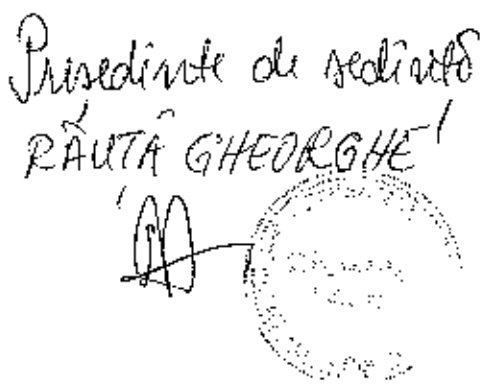 Președinte de ședință
RĂUȚĂ GHEORGHE